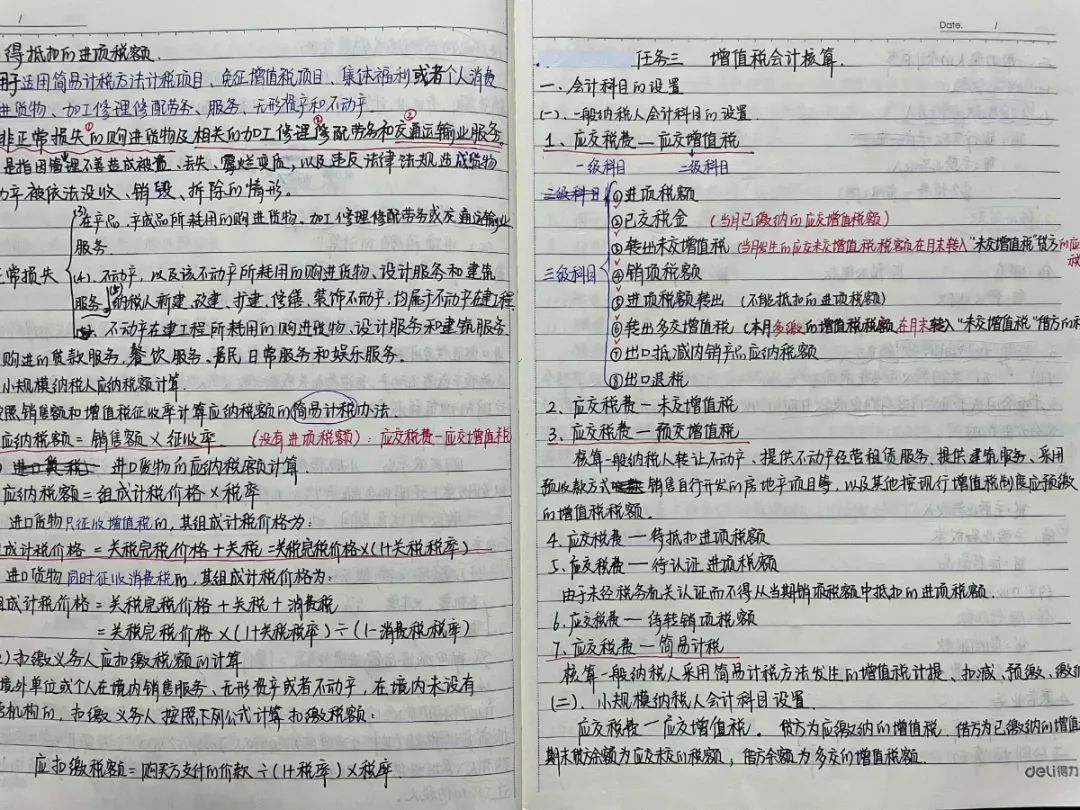 得抵扣的进项税额.
用于适用简易计税方法计税项目、免征增值税项目、集体福利或者个人消费
进货物、加工修理修配劳务、服务、无形资产和不动产
非正常损失①的购进货物及相关的加工修理修配②劳务和交通运输业服务③
是指因管理不善造成被盗、丢失、霉烂变质,以及违反法律法规造成货物
动产被依法没收、销毁、拆除的情形.
(3)在产品、产成品所耗用的购进货物、加工修理修配劳务或交通运输业
服务.
正常损失
(4).不动产,以及该不动产所耗用的购进货物、设计服务和建筑
服务.纳税人新建、改建、扩建、修缮、装饰不动产,均属于不动产在建工程
不动产在建工程所耗用的购进货物、设计服务和建筑服务
购进的贷款服务,餐饮服务、居民日常服务和娱乐服务.
小规模纳税人应纳税额计算.
按照销售额和增值税征收率计算应纳税额的简易计税办法.
应纳税额=销售额×征收率 (没有进项税额):应交税费-应交增值税
进口货物的应纳税额计算
应纳税额=组成计税价格×税率
进口货物只征收增值税的,其组成计税价格为:
组成计税价格=关税完税价格+关税=关税完税价格×(1+关税税率)
进口货物同时征收消费税的,其组成计税价格为:
组成计税价格=关税完税价格+关税+消费税
=关税完税价格×(1+关税税率)÷(1-消费税税率)
)扣缴义务人应扣缴税额的计算
境外单位或个人在境内销售服务、无形资产或者不动产,在境内未设有
营机构的,扣缴义务人按照下列公式计算扣缴税额:
应扣缴税额=购买方支付的价款÷(1+税率)×税率
Date. /
任务三 增值税会计核算.
一、会计科目的设置
(一)、一般纳税人会计科目的设置.
1、应交税费—应交增值税
一级科目 二级科目
三级科目
①进项税额
②已交税金 (当月已缴纳的应交增值税额)
③转出未交增值税(当月发生的应交未交增值税税额在月末转入"未交增值税"贷方的应
三级科目
④销项税额
⑤进项税额转出 (不能抵扣的进项税额)
⑥转出多交增值税(本月多缴的增值税税额在月末转入"未交增值税"借方的
⑦出口抵减内销产品应纳税额
⑧出口退税
2、应交税费—未交增值税
3、应交税费—预交增值税
核算一般纳税人转让不动产、提供不动产经营租赁服务、提供建筑服务、采用
预收款方式销售自行开发的房地产项目等,以及其他按现行增值税制度应预缴
的增值税税额.
4.应交税费—待抵扣进项税额
5.应交税费—待认证进项税额
由于未经税务机关认证而不得从当期销项税额中抵扣的进项税额.
6.应交税费—待转销项税额
7.应交税费—简易计税
核算一般纳税人采用简易计税方法发生的增值税计提、扣减、预缴、缴纳
(二)、小规模纳税人会计科目设置.
应交税费—应交增值税. 贷方为应缴纳的增值税,借方为已缴纳的增值
期末贷余额为应交未交的税额,借方余额为多交的增值税额.
deli得力